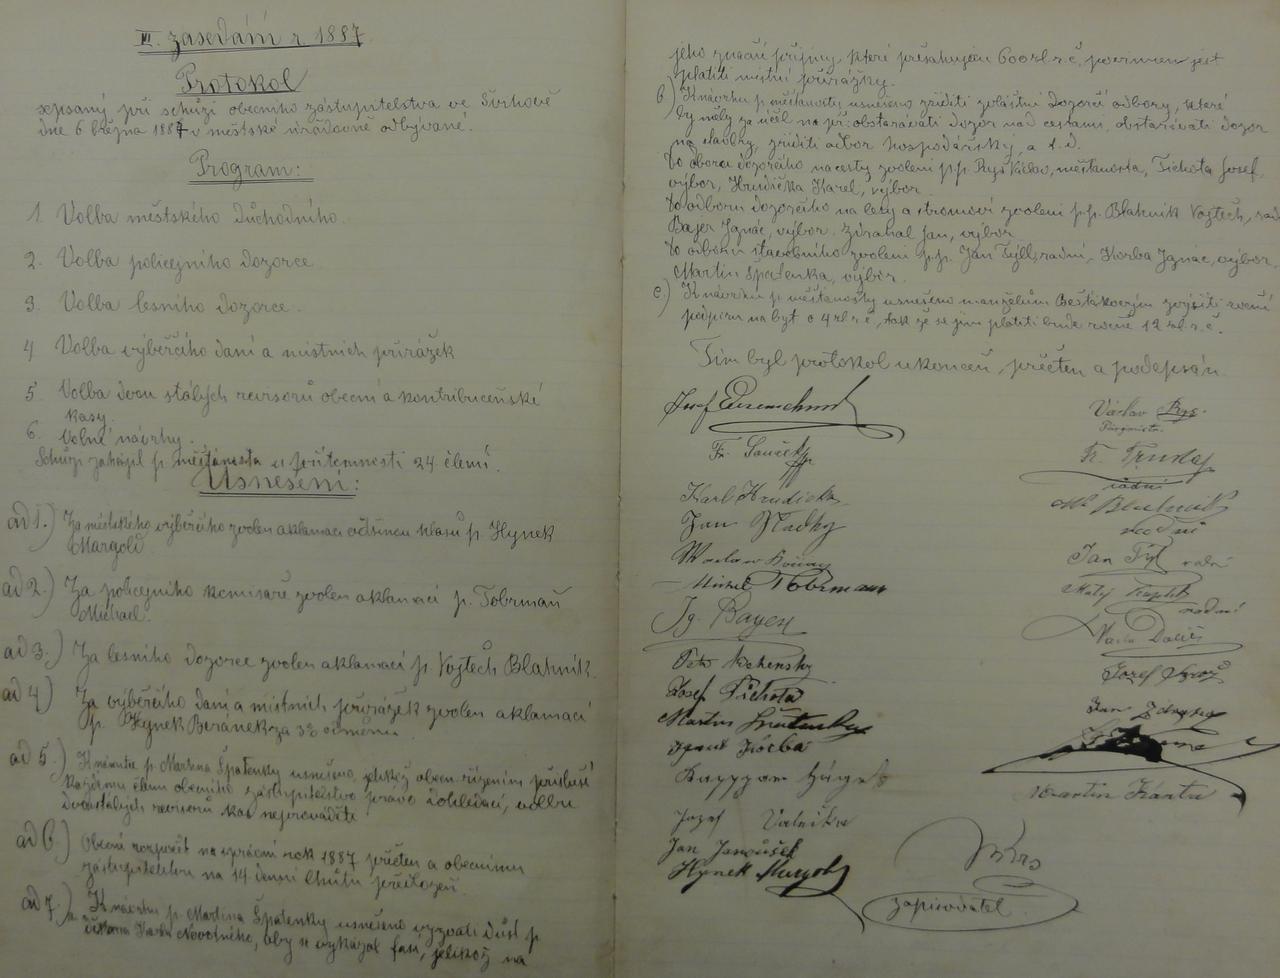 III. zasedání z 1887.
Protokol
sepsaný při schůzi obecního zástupitelstva ve Švihově
dne 6 března 1887 v městské úřadovně odbývané.
Program:
1. Volba městského důchodního.
2. Volba policejního dozorce
3. Volba lesního dozorce.
4 Volba výběrčího daní a místních přirážek
5. Volba dvou stálých revisorů obecní a kontribučenské
kasy.
6. Volné návrhy.
Schůzi zahájil p. měšťanosta u přítomnosti 24 členů.
Usnešení:
ad 1.) Za městského výběrčího zvolen aklamací většinou hlasů p. Hynek
Margold.
ad 2.) Za policejního komisaře zvolen aklamací p. Tobrman
Michael.
ad 3.) Za lesního dozorce zvolen aklamací p. Vojtěch Blahník.
ad 4) Za výběrčího daní a místních přirážek zvolen aklamací
p. Hynek Beránek za 3% odměnu.
ad 5.) K návrhu p. Martina Špatenky usnešeno, jelikož obecn. řízením přísluší
každému členu obecního zástupitelstva právo dohledací, volbu
dvou stálých revisorů kas neprováděti
ad 6.) Obecní rozpočet na správní rok 1887 přečten a obecnímu
zástupitelstvu na 14 denní lhůtu předložen.
ad 7.) a. K návrhu p. Martina Špatenky usnešeno vyzvati důst p
děkana Karla Novotného, aby se vykázal fasí, jelikož na
jeho značí příjmy, které přesahujíc 600 zl. r. č. povinnen jest
platiti místní přirážky.
b) K návrhu p. měšťanosty usnešeno zříditi zvláštní dozorčí odbory, které
by měly za účel na př: obstarávati dozor nad cestami, obstarávati dozor
na stavby, zříditi odbor hospodářský, a t. d.
Do oboru dozorčího na cesty zvoleni p. p. Rys Václav, měšťanosta, Tichota Josef,
výbor, Hrudička Karel, výbor.
Do odboru dozorčího na lesy a stromoví zvoleni p. p. Blahník Vojtěch, rad
Bajer Ignác, výbor. Zdrahal Jan, výbor
Do odboru stavebního zvoleni p. p. Jan Týll, radní, Korba Ignác, výbor,
Martin Špatenka, výbor.
c) K návrhu p. měšťanosty usnešeno manželům Bešťákovým zvýšiti roční
podporu na byt o 4 zl. r. č, tak že se jim platiti bude ročně 12 zl. r. č.
Tím byl protokol ukončen, přečten a podepsán.
Josef
Václav Rys.
Purgmistr.
Fr. Souček
Fr.
radní
Karl Hrudička
Blahník
radní
Jan Hladky
Jan Tyl radní
Václav
Michael Tobrman
Matěj
radní
Ig. Bayer
Petr
Josef
Josef Tichota
Jan
Martin Špatenka
Ignac Korba
Martin
Josef
Jan Janoušek
Hynek Margold
zapisovatel.